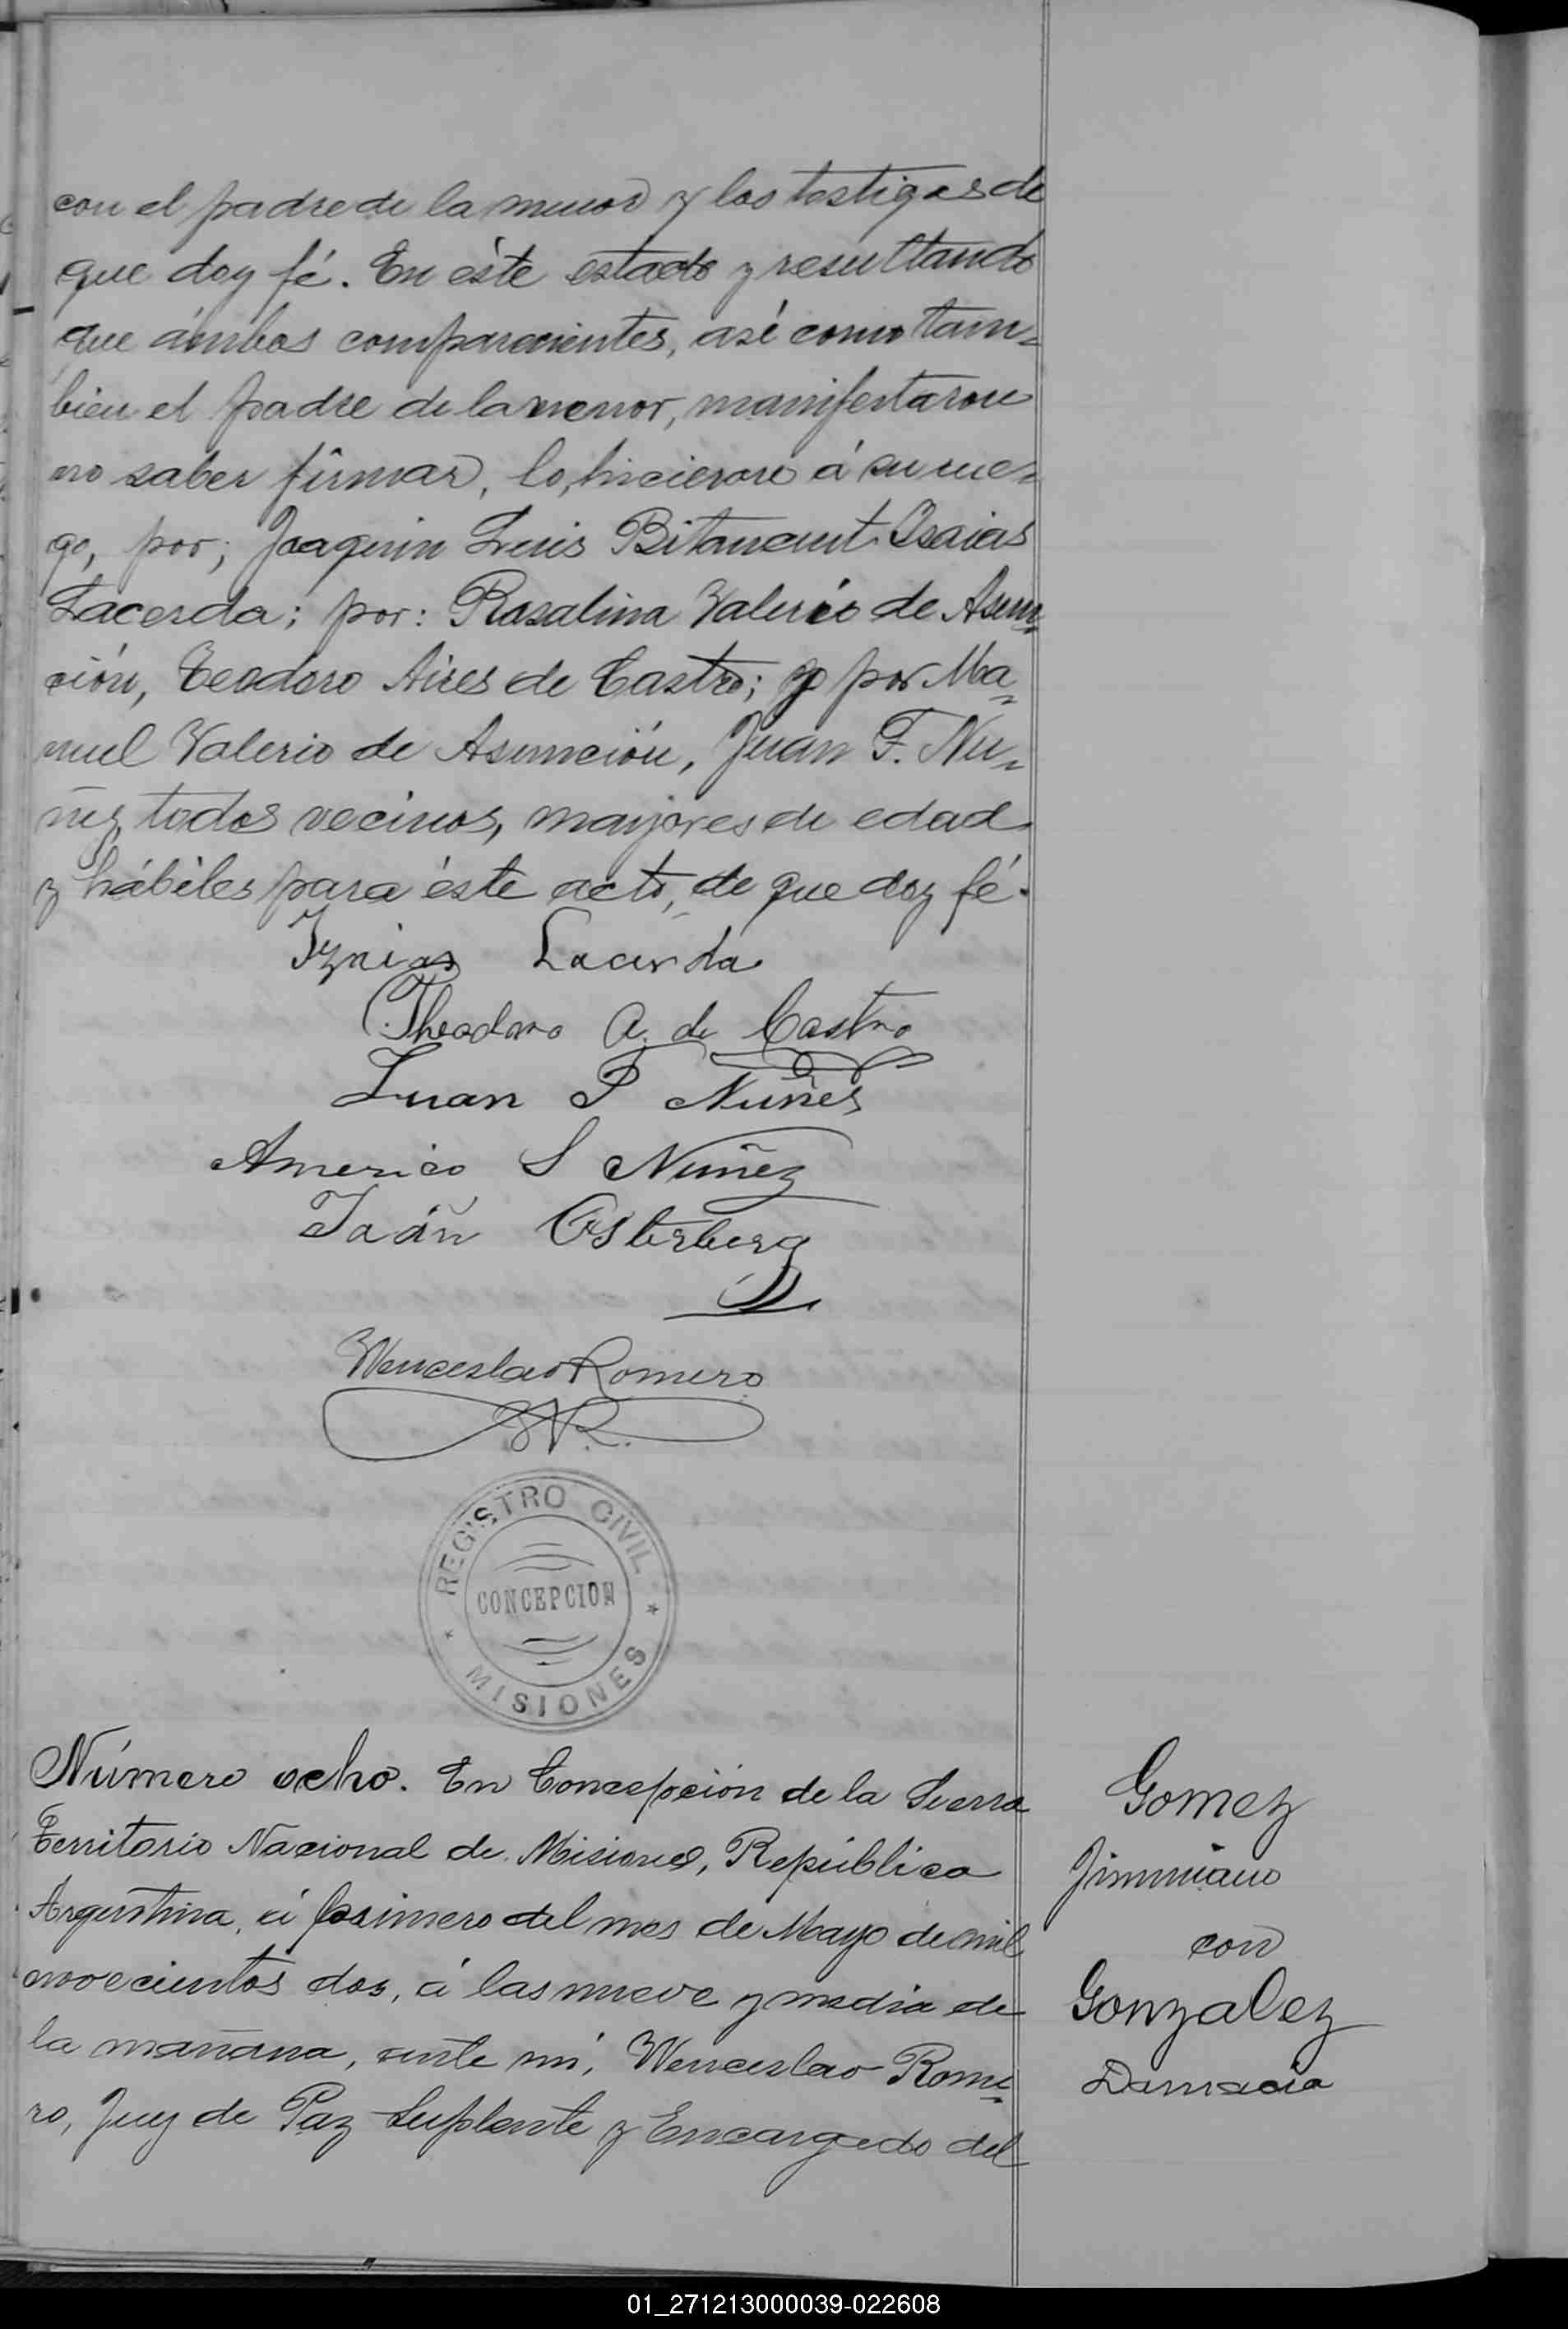 con el padre de la menor y los testigos de
que doy fé. En éste estado y resultando
que ámbos comparecientes, asé como tam=
bien el padre de la menor, manifestaron
no saber firmar, lo hicieron á su rue=
go, por; Joaquin Luis Bitancurt Isaias
Lacerda; por: Rosalina Valerio de Asun=
ción, Teodoro Aires de Castro; y por Ma=
nuel Valerio de Asunción, Juan F. Nu=
ñez, todos vecinos, mayores de edad
y hábiles para éste acto, de que doy fé.
Izaias Lacerda
Theodoro A. de Castro
Juan F Nuñes
Americo S Nuñez
Juán Osterberg
Wenceslao Romero
W R.
REGISTRO CIVIL
CONCEPCION
MISIONES
Número ocho. En Concepción de la Sierra
Territorio Nacional de Misiones, República
Argentina, á primero del mes de Mayo de mil
novecientos dos, á las nueve y media de
la mañana, ante mí, Wenceslao Rome=
ro, Juez de Paz Suplente y Encargado del
Gomez
Jimmiano
con
Gonzalez
Damacia
01_271213000039-022608